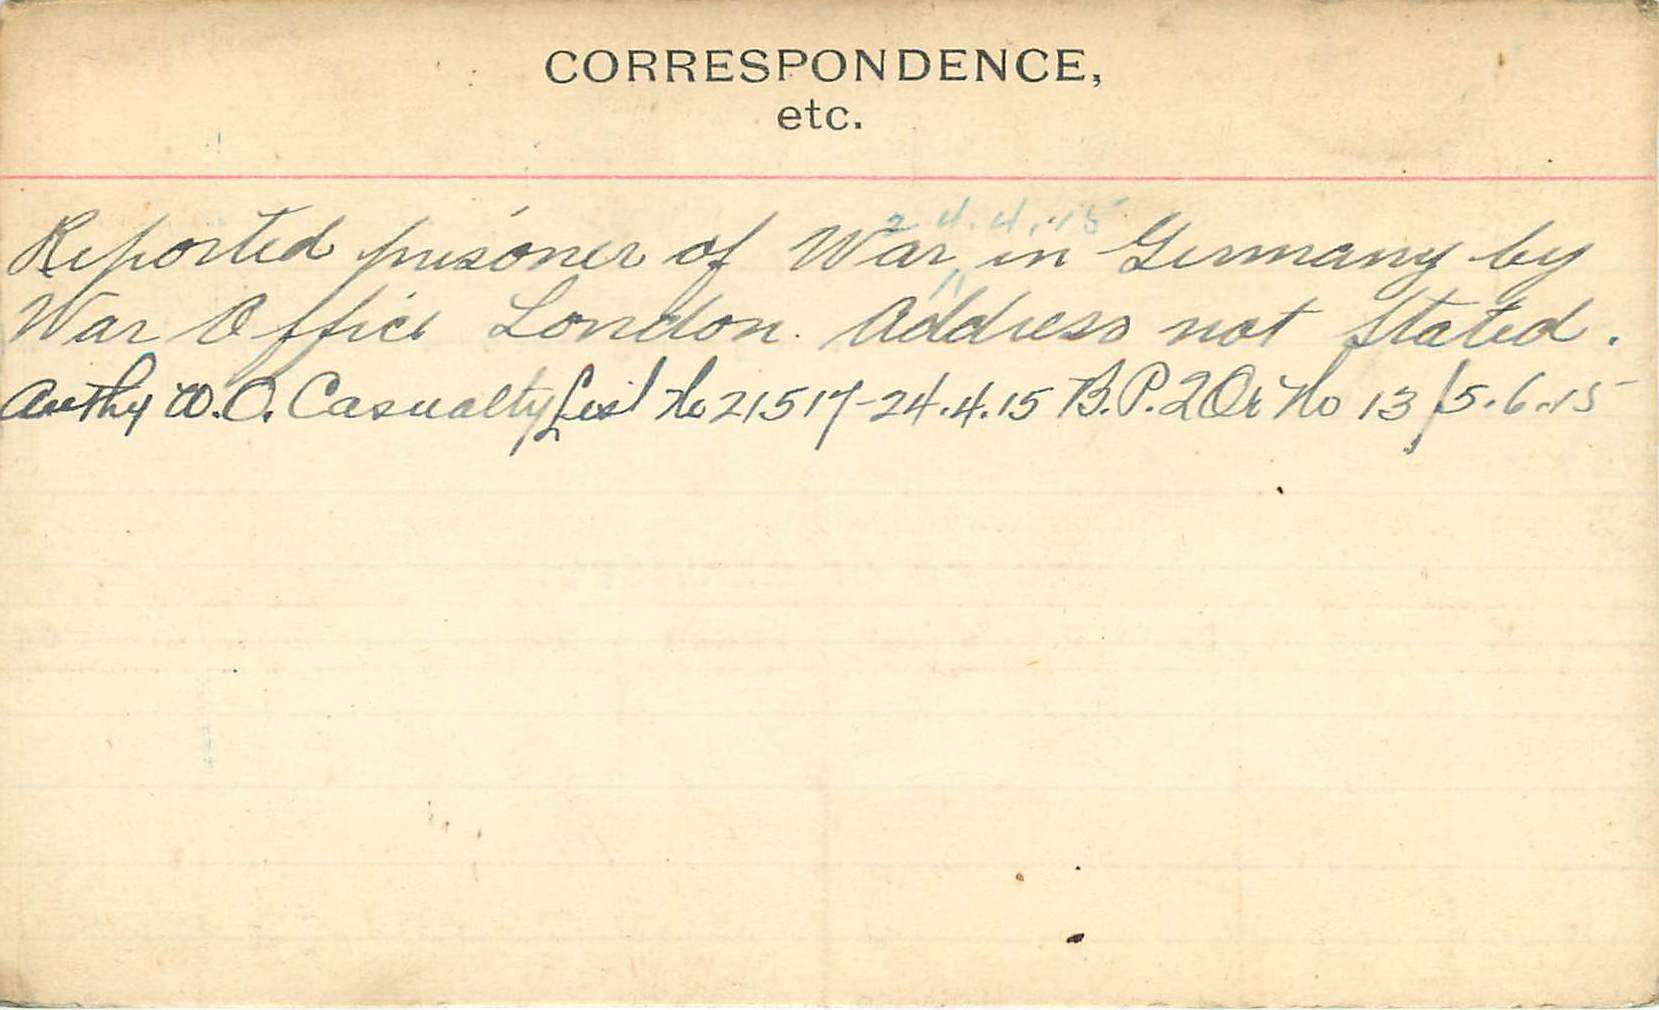 CORRESPONDENCE,
etc.
24.4.15
Reported prisoner of War in Germany by
War Office London. Address not Stated.
Authy W.O. Casualty List No 21517-24.4.15 B.P. 2 Or No 13/5.6.15